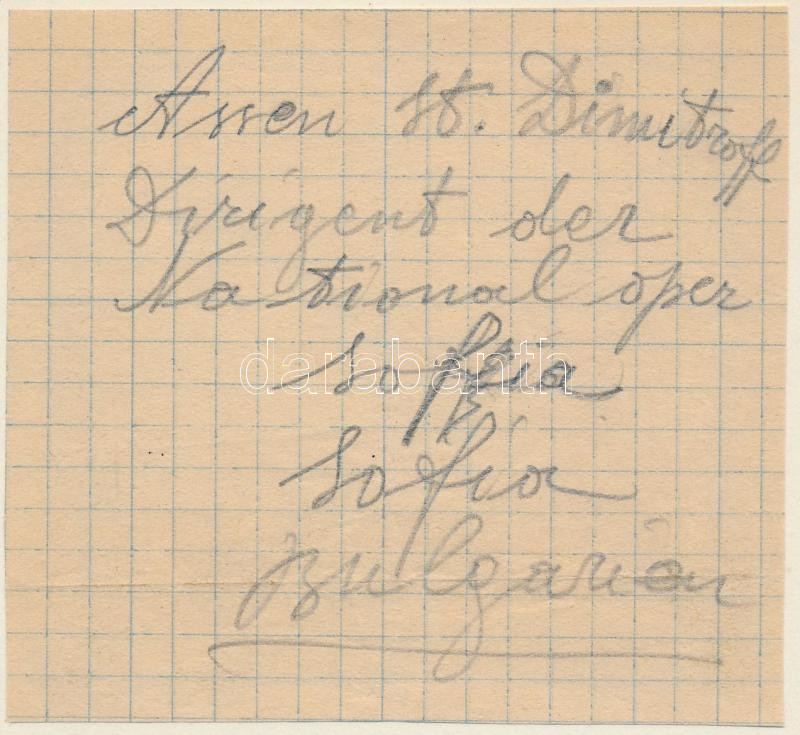 Assen St. Dimitroff
Dirigent der
National oper
Soffia
darabanth
Sofia
Bulgarien